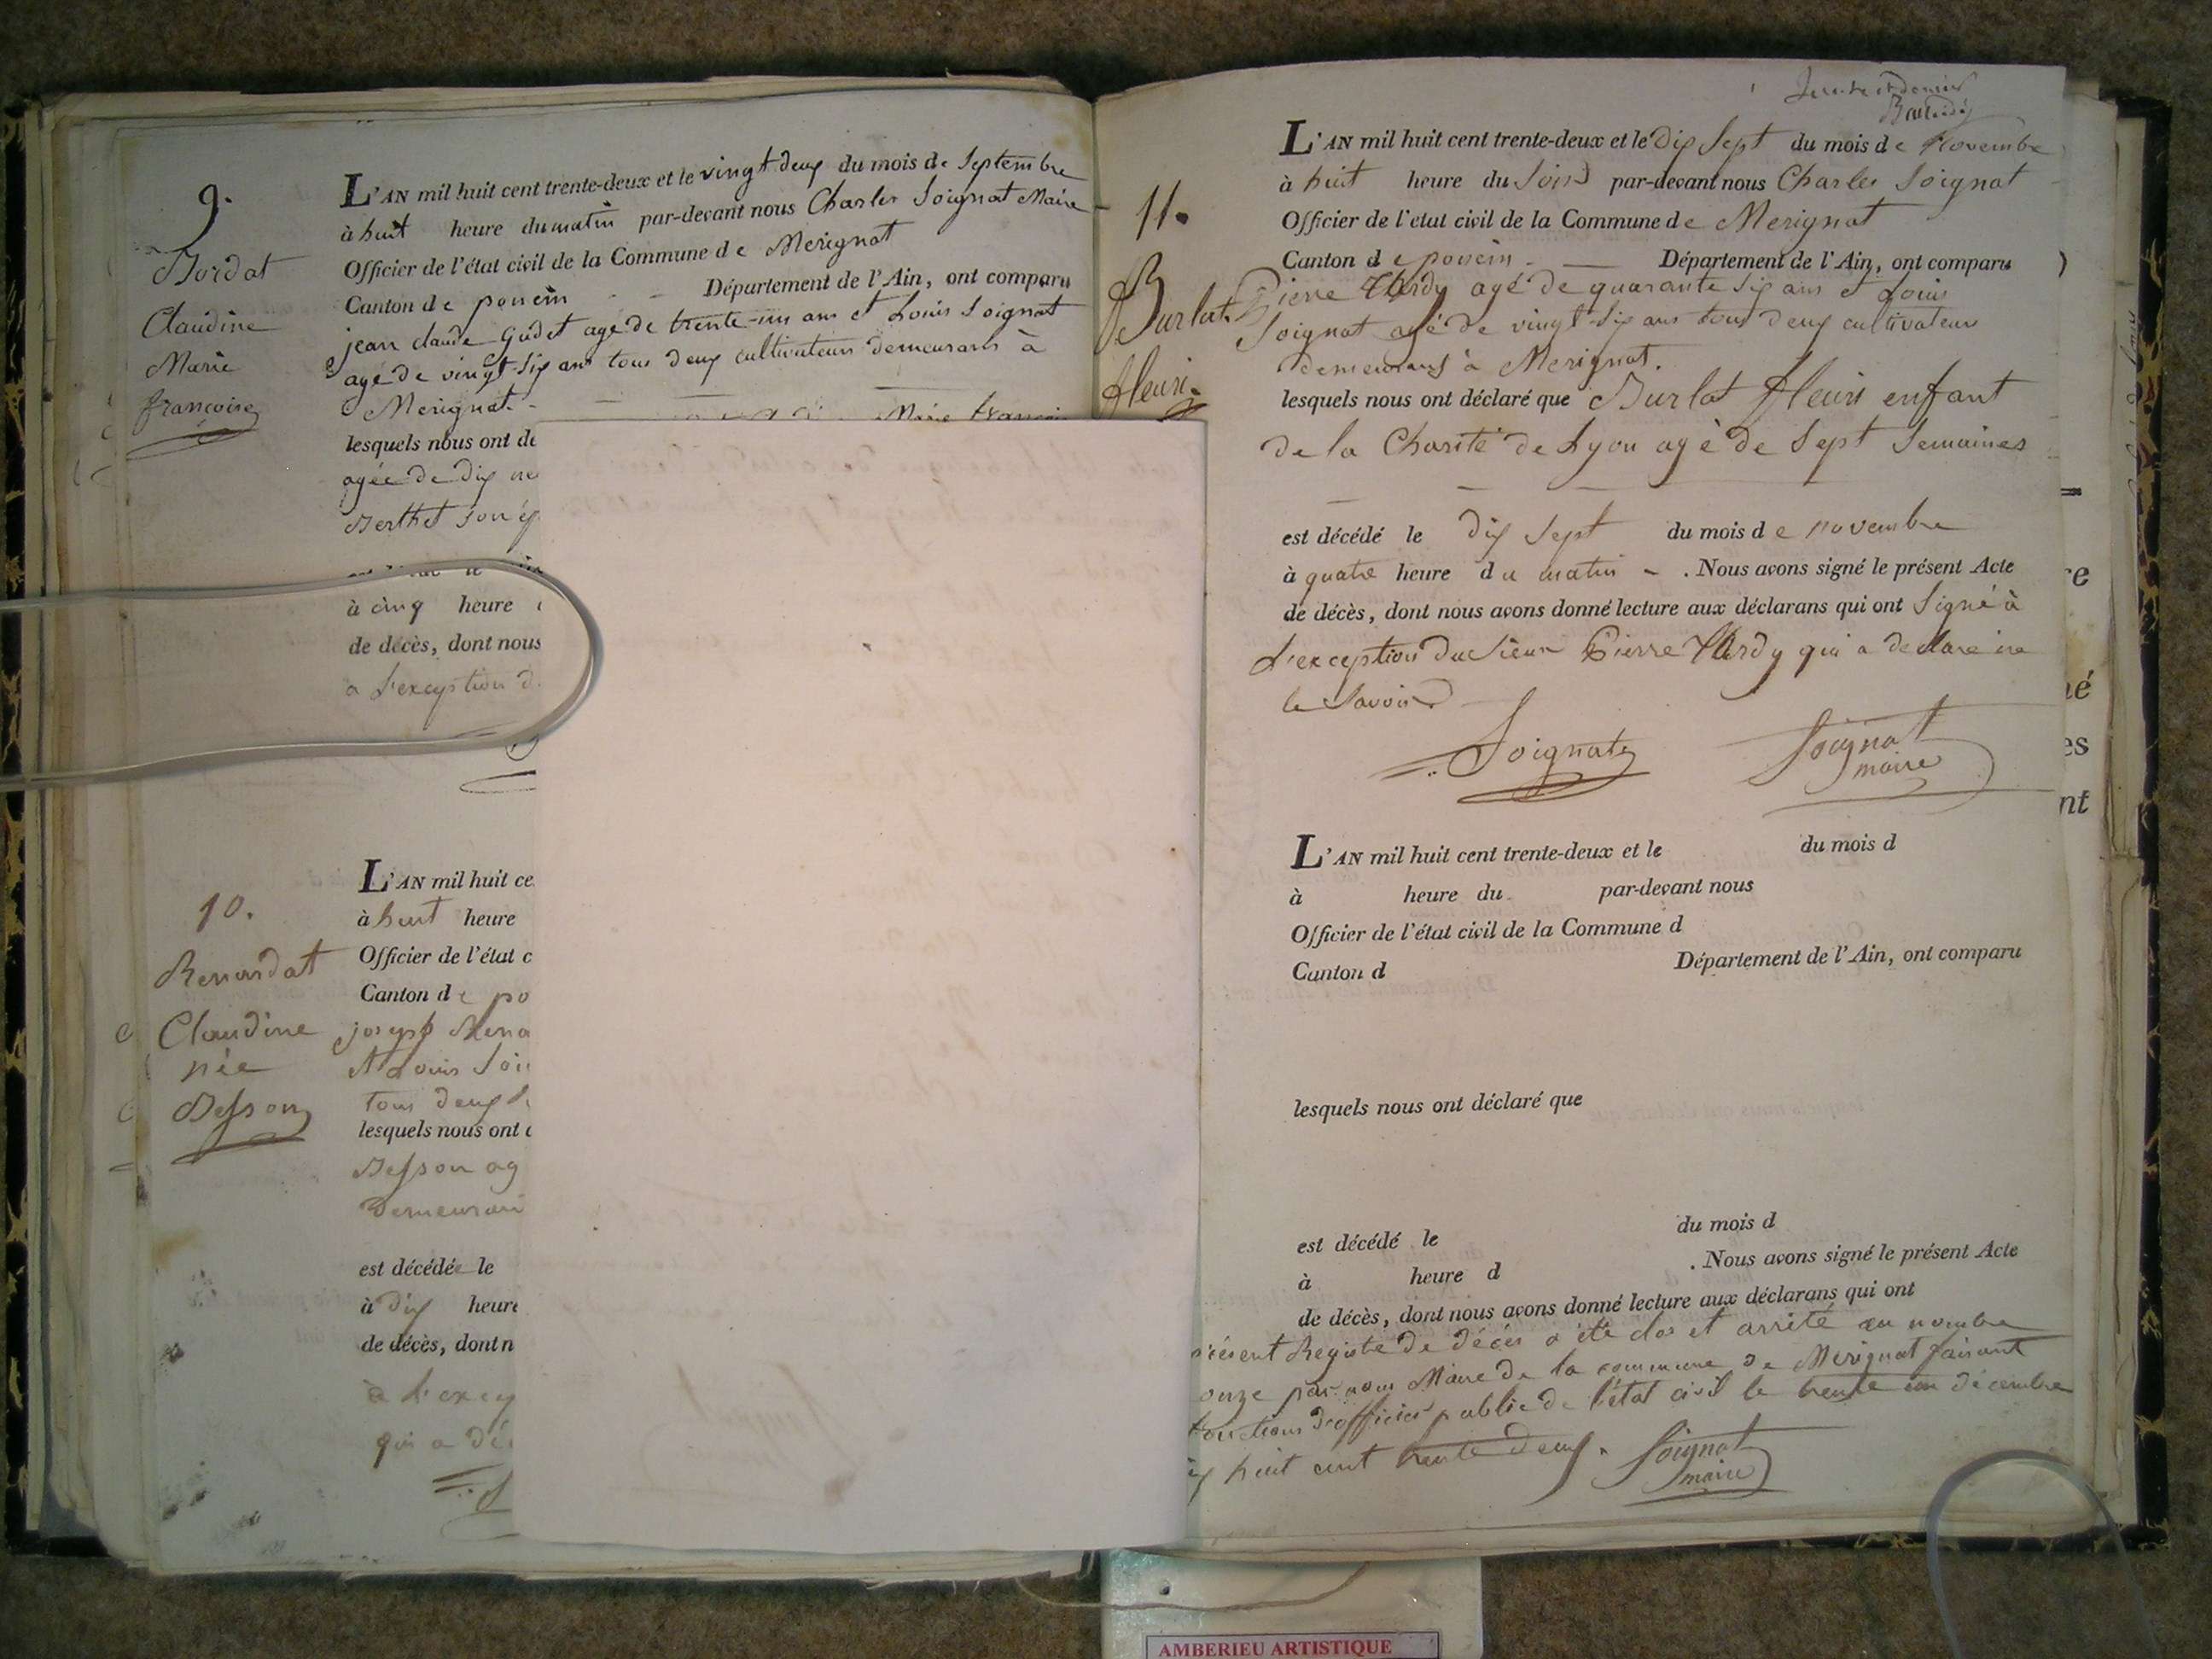 9.
Bordat
Claudine
Marie
françoise
L'AN mil huit cent trente-deux et le vingt deux du mois de Septembre
à huit heure du matin par-devant nous Charles Soignat Maire
Officier de l'état civil de la Commune de Merignat
Canton de poncin Département de l'Ain, ont comparu
jean claude Gudet agé de trente-un ans et Louis Soignat
agé de vingt-six ans tous deux cultivateurs demeurans à
Merignat.
lesquels nous ont dé
agée de dix ne
Berthet son ép
à cinq heure
de décès, dont nous
a l'exception d
10.
Renardat
Claudine
née
Besson
L'AN mil huit ce
à huit heure
Officier de l'état c
Canton de po
joseph Rena
et Louis Soi
tous deux
lesquels nous ont
Besson ag
demeuran
est décédée le
à dix heure
de décès, dont n
à l'excep
qui a dé
L'AN mil huit cent trente-deux et le dix sept du mois de Novembre
à huit heure du soir par-devant nous Charles Soignat
Officier de l'etat civil de la Commune de Merignat
Canton de poncin Département de l'Ain, ont comparu
11.
Burlat
fleuri
Pierre Hardy agé de quarante six ans et Louis
Soignat agé de vingt-six ans tous deux cultivateurs
demeurans à Merignat.
lesquels nous ont déclaré que Burlat fleuri enfant
de la Charité de Lyon agé de Sept Semaines
est décédé le dix sept du mois de novembre
à quatre heure du matin . Nous avons signé le présent Acte
de décès, dont nous avons donné lecture aux déclarans qui ont Signé à
L'exception du Sieur Pierre Hardy qui a declaré ne
le Savoir
Soignat
Soignat
maire
L'AN mil huit cent trente-deux et le du mois d
à heure du par-devant nous
Officier de l'état civil de la Commune d
Canton d Département de l'Ain, ont comparu
lesquels nous ont déclaré que
est décédé le du mois d
à heure d . Nous avons signé le présent Acte
de décès, dont nous avons donné lecture aux déclarans qui ont
présent Registre de décès a été clos et arrêté au nombre
onze par nous Maire de la commune de Merignat faisant
fonctions d'officier public de l'état civil le trente un décembre
huit cent trente deux. Soignat
maire
re
né
es
nt
AMBERIEU ARTISTIQUE